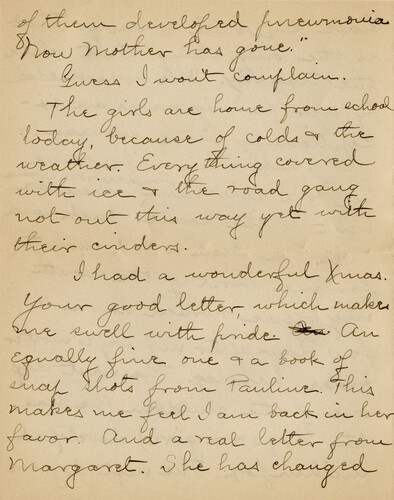 of them developed pneumonia
Now Mother has gone."
Guess I won't complain.
The girls are home from school
today, because of colds & the
weather. Everything covered
with ice & the road gang
not out this way yet with
their cinders.
I had a wonderful Xmas.
Your good letter, which makes
me swell with pride. An
equally fine one & a book of
snap shots from Pauline. This
makes me feel I am back in her
favor. And a real letter from
Margaret. She has changed